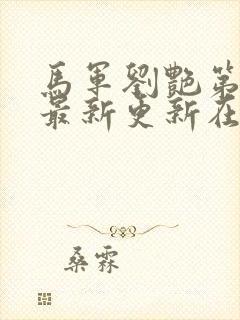 馬軍劉艷第
最新更新在
桑霖